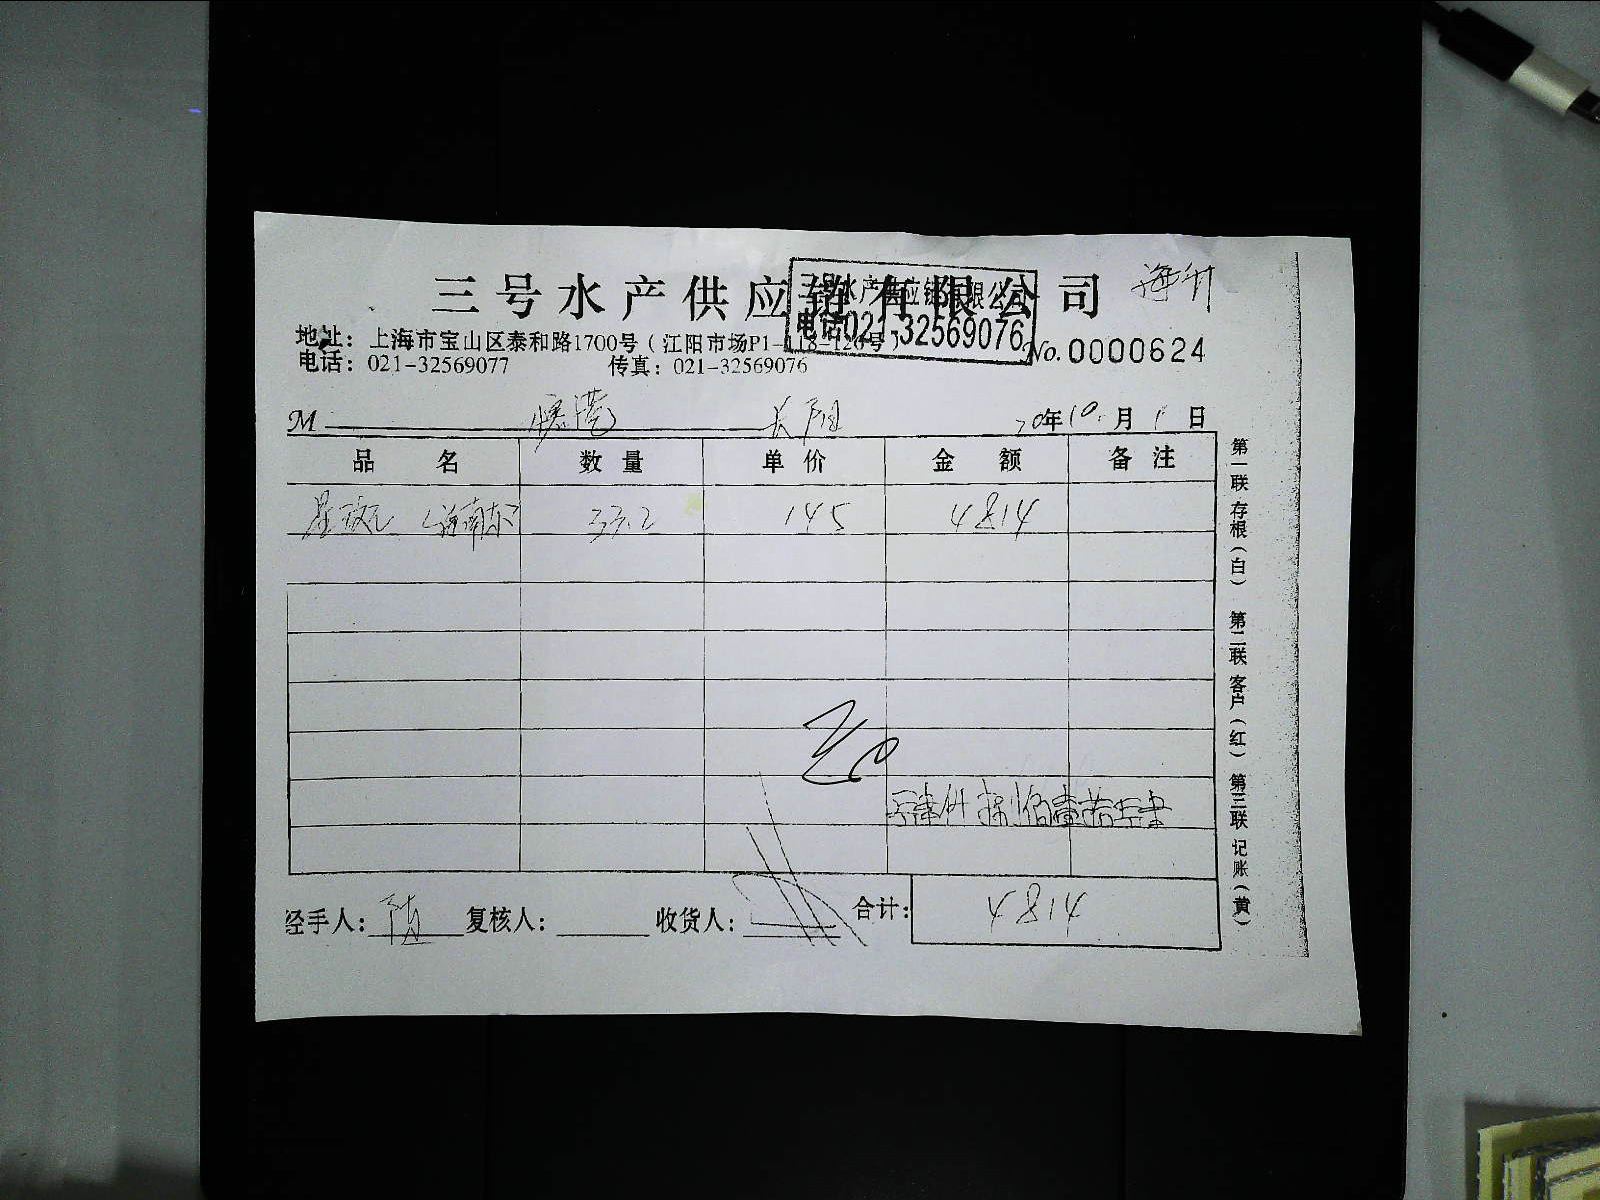 三号水产供应链有限公司
三号水产供应链有限公司
电话021-32569076
海升
地址：上海市宝山区泰和路1700号（江阳市场P1-118-126号）
电话：021-32569077 传真：021-32569076 No.0000624
M 长阳 20年10月1日
品名 数量 单价 金额 备注
星斑 33.2 145 4814
捌佰壹拾
经手人： 复核人： 收货人： 合计： 4814
第一联 存根（白） 第二联 客户（红） 第三联 记账（黄）